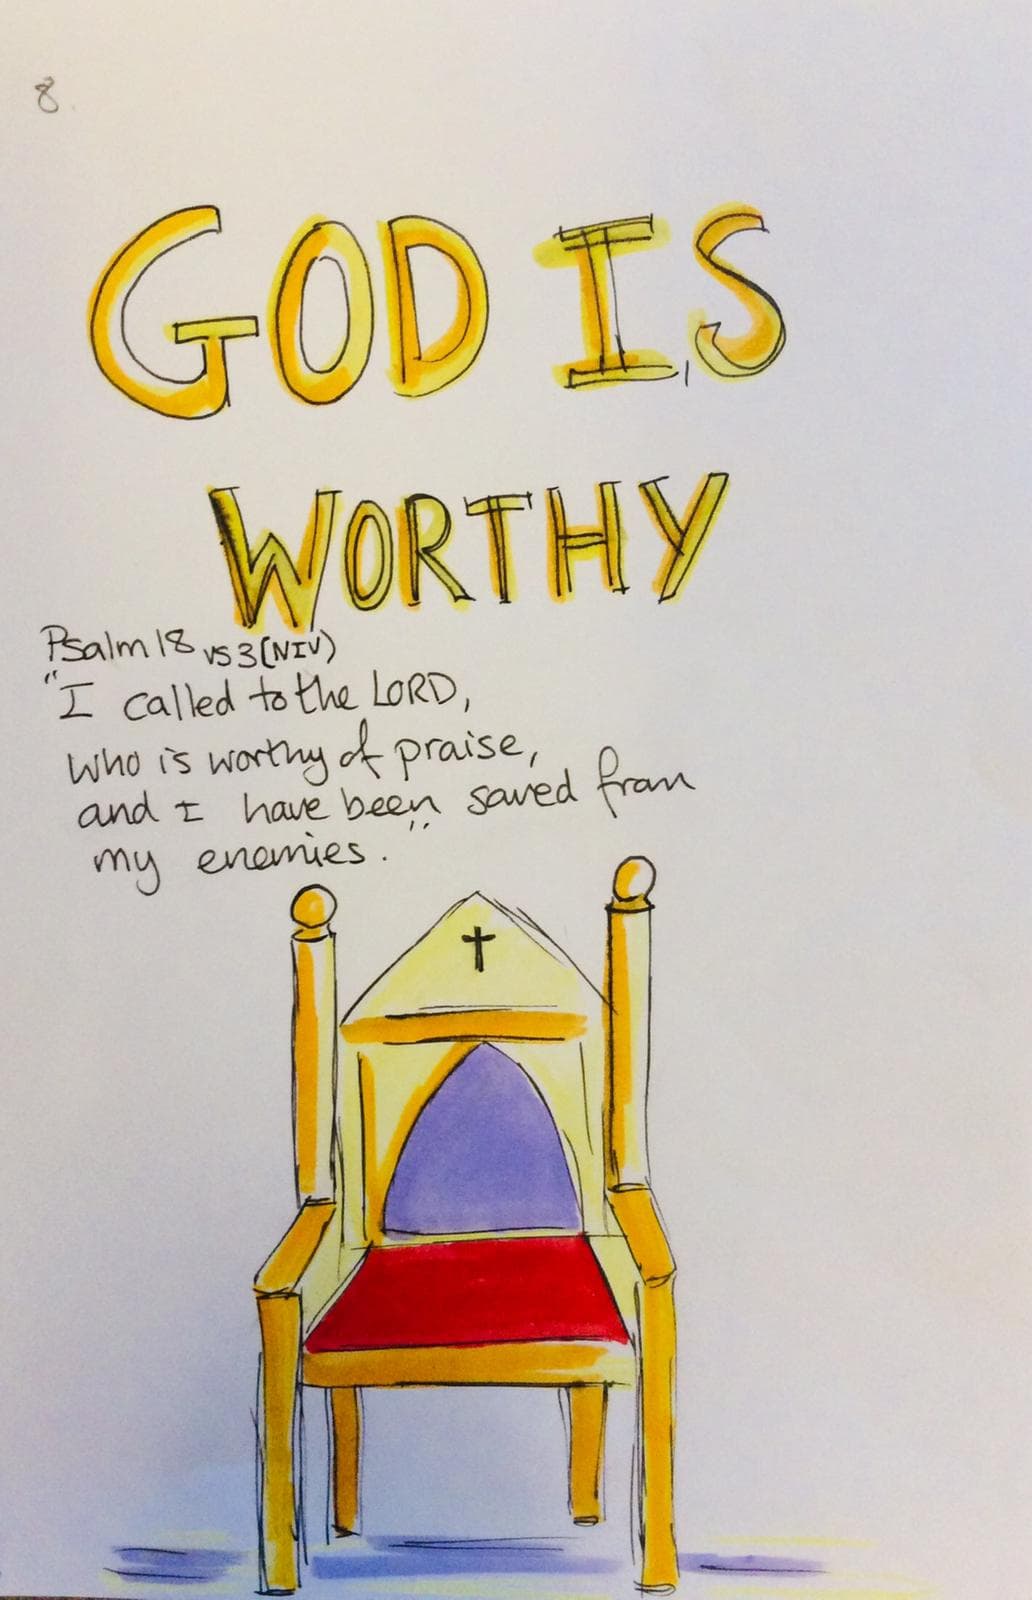 8.
GOD IS
WORTHY
Psalm 18 vs 3 (NIV)
"I called to the LORD,
who is worthy of praise,
and I have been saved from
my enemies."